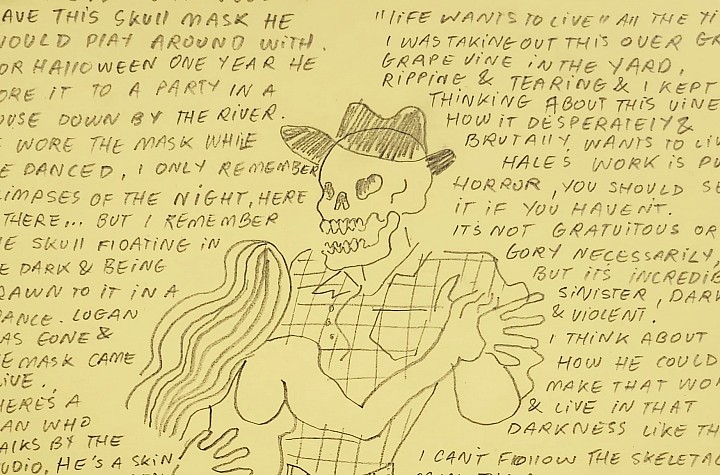 AVE THIS SKULL MASK HE
WOULD PLAY AROUND WITH.
OR HALLOWEEN ONE YEAR HE
ORE IT TO A PARTY IN A
OUSE DOWN BY THE RIVER.
E WORE THE MASK WHILE
E DANCED, I ONLY REMEMBER
LIMPSES OF THE NIGHT, HERE
THERE... BUT I REMEMBER
HE SKULL FLOATING IN
E DARK & BEING
RAWN TO IT IN A
RANCE. LOGAN
AS GONE &
HE MASK CAME
LIVE.
HERE'S A
AN WHO
ALKS BY THE
UDIO, HE'S A SKIN
"LIFE WANTS TO LIVE" ALL THE TI
I WAS TAKING OUT THIS OVER GR
GRAPE VINE IN THE YARD,
RIPPING & TEARING & I KEPT
THINKING ABOUT THIS VINE
HOW IT DESPERATELY &
BRUTALLY, WANTS TO LIV
HALE'S WORK IS PU
HORROR, YOU SHOULD SE
IT IF YOU HAVEN'T.
IT'S NOT GRATUITOUS OR
GORY NECESSARILY,
BUT ITS INCREDIB
SINISTER, DARK
& VIOLENT.
I THINK ABOUT
HOW HE COULD
MAKE THAT WOR
& LIVE IN THAT
DARKNESS LIKE TH
I CAN'T FOLLOW THE SKELETA